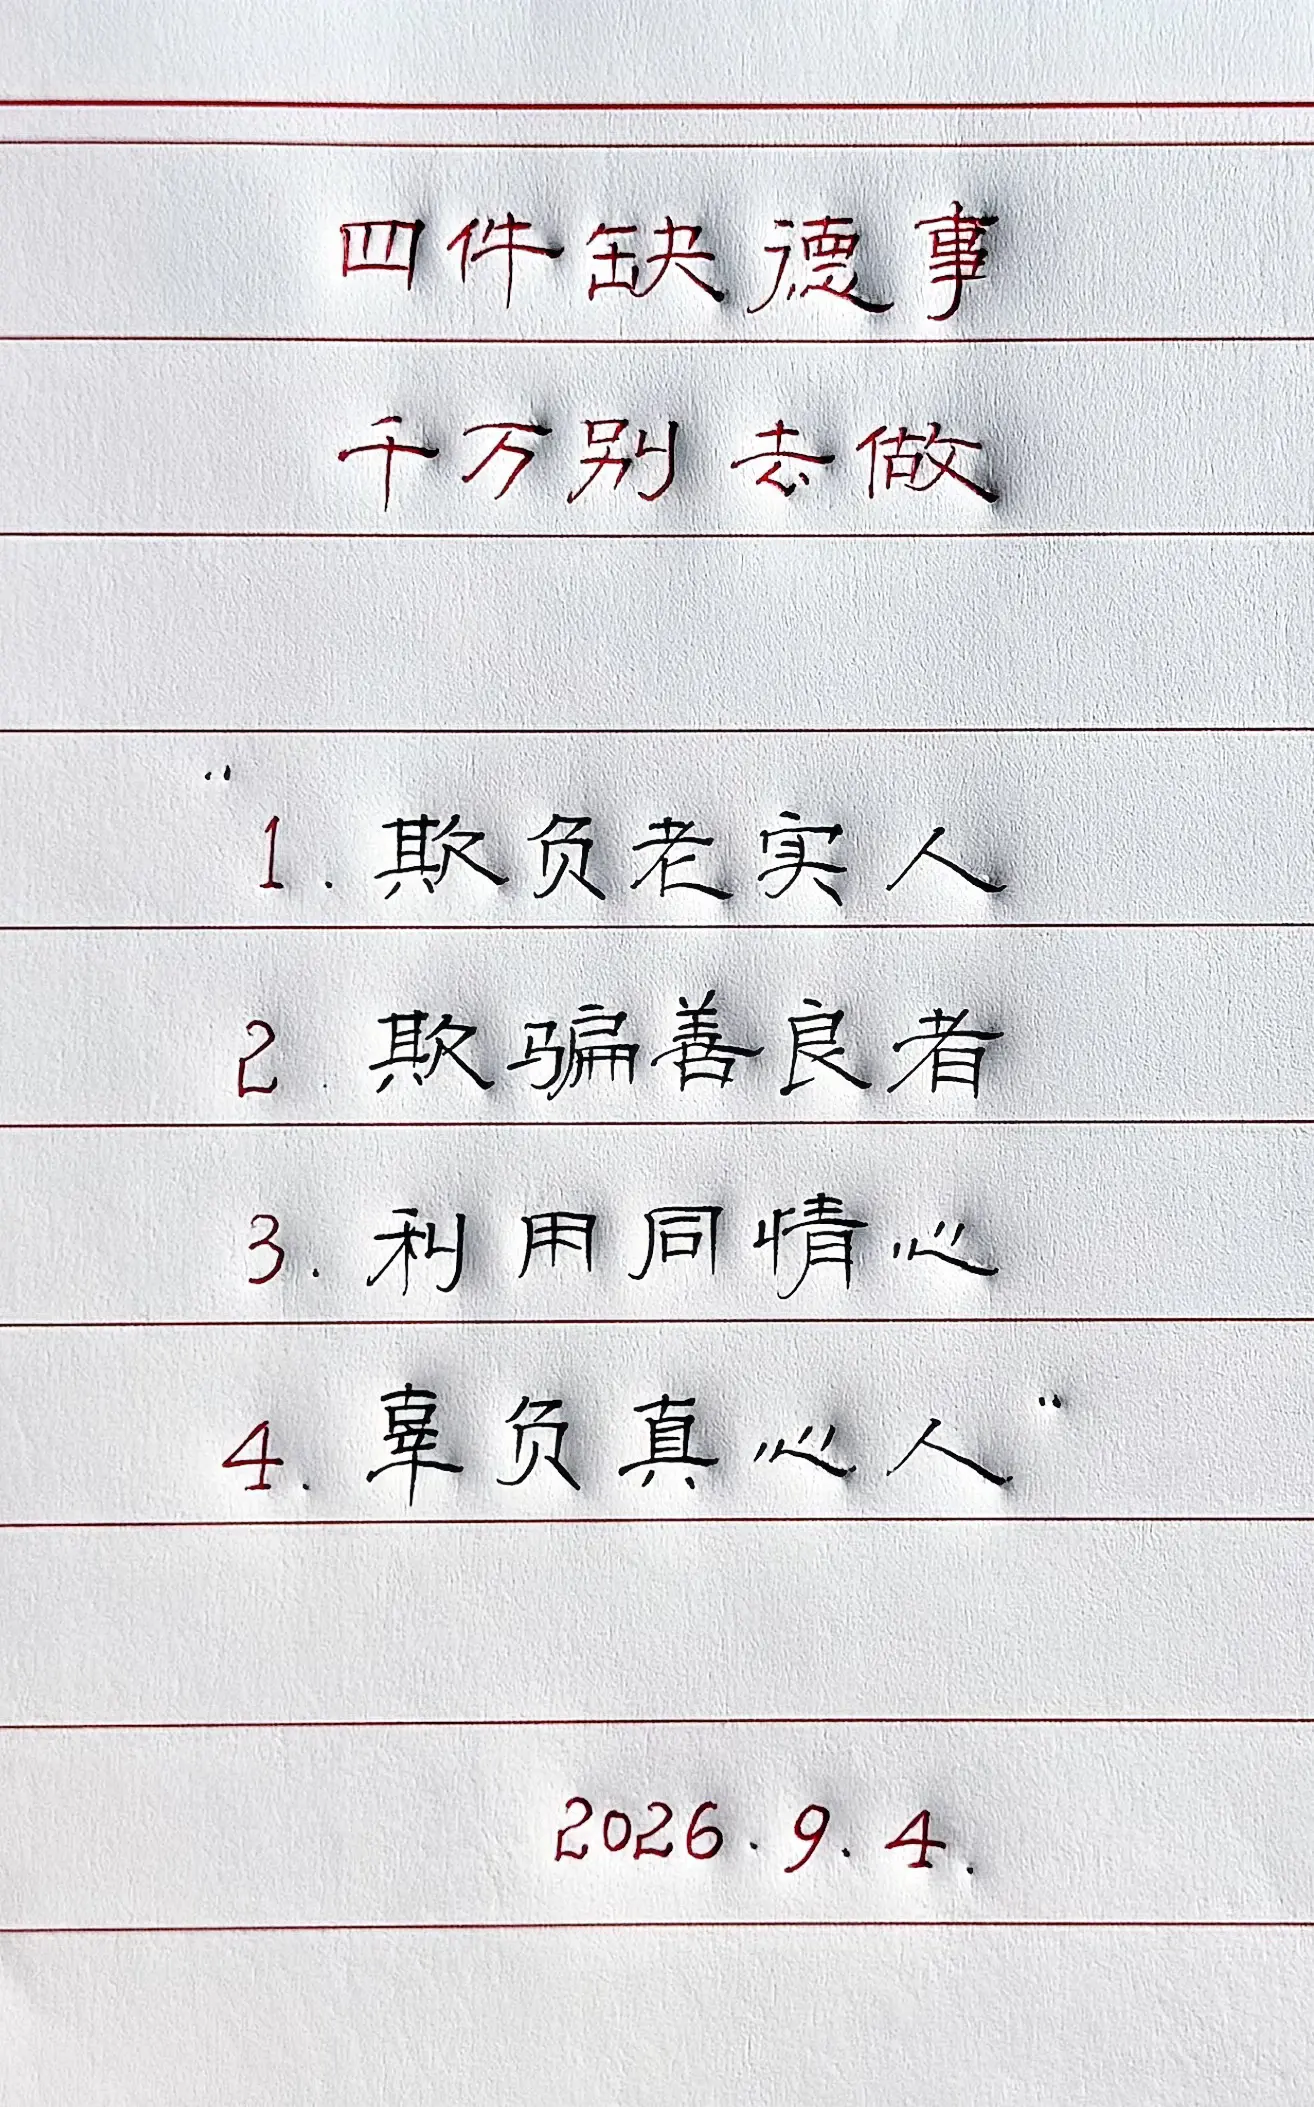 四件缺德事
千万别去做
“1.欺负老实人
2.欺骗善良者
3.利用同情心
4.辜负真心人”
2026.9.4.